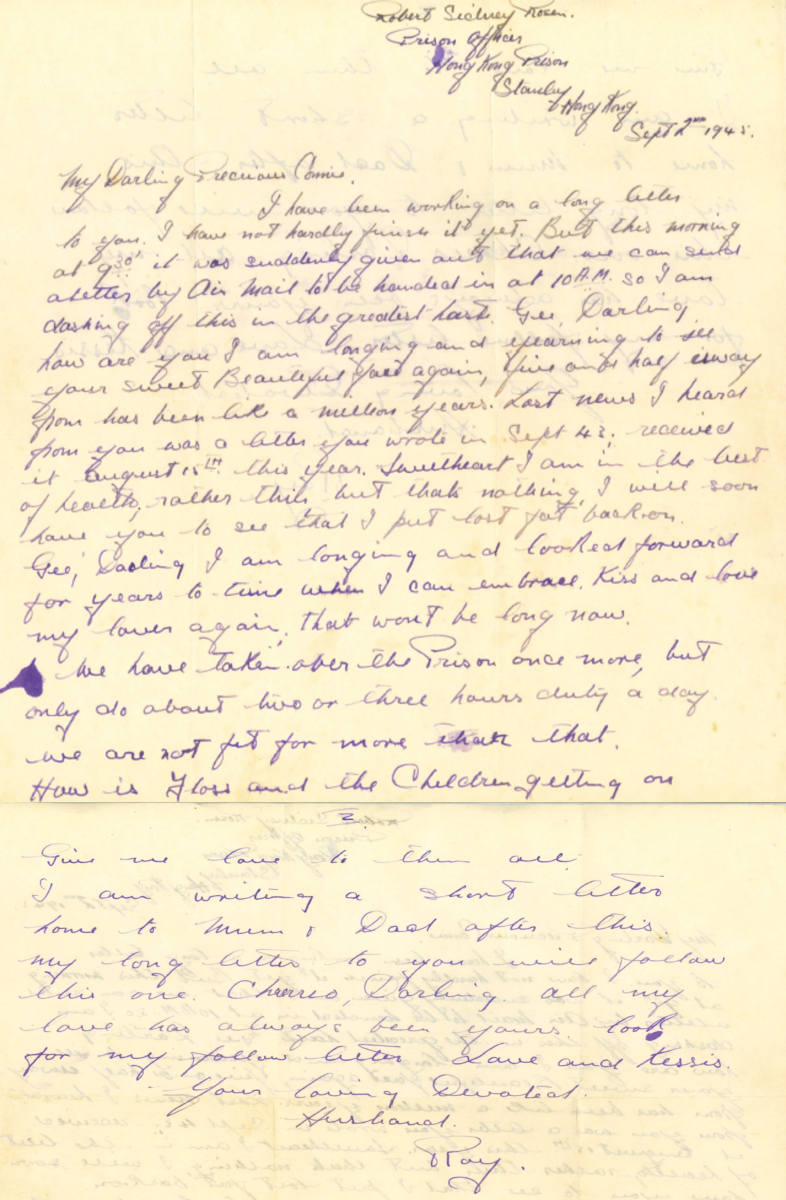 Robert Sidney Rosen.
Prison Officer
Hong Kong Prison
Stanley
Hong Kong.
Sept 2nd 1945.
My Darling Precious Connie.
I have been working on a long letter
to you. I have not hardly finish it yet. But this morning
at 9.30' it was suddenly given out that we can send
a letter by Air Mail to be handed in at 10 A.M. so I am
dashing off this in the greatest haste. Gee, Darling
how are you I am longing and yearning to see
your sweet Beautiful face again, five and half away
from has been like a million years. Last news I heard
from you was a letter you wrote in Sept 43; received
it august 15TH this year. Sweetheart I am in the best
of health, rather thin but thats nothing, I will soon
have you to see that I put lost fat back on.
Gee, Darling I am longing and looked forward
for years to time when I can embrace, Kiss and love
my lover again, that wont be long now.
We have taken over the Prison once more, but
only do about two or three hours duty a day.
we are not fit for more than that.
How is Floss and the Children getting on
3.
Give me love to them all
I am writing a short letter
home to Mum & Dad after this.
my long letter to you will follow
this one. Cheerio, Darling. all my
love has always been yours. look
for my follow letter Love and Kessis.
Your loving Devoted.
Husband.
Ray.